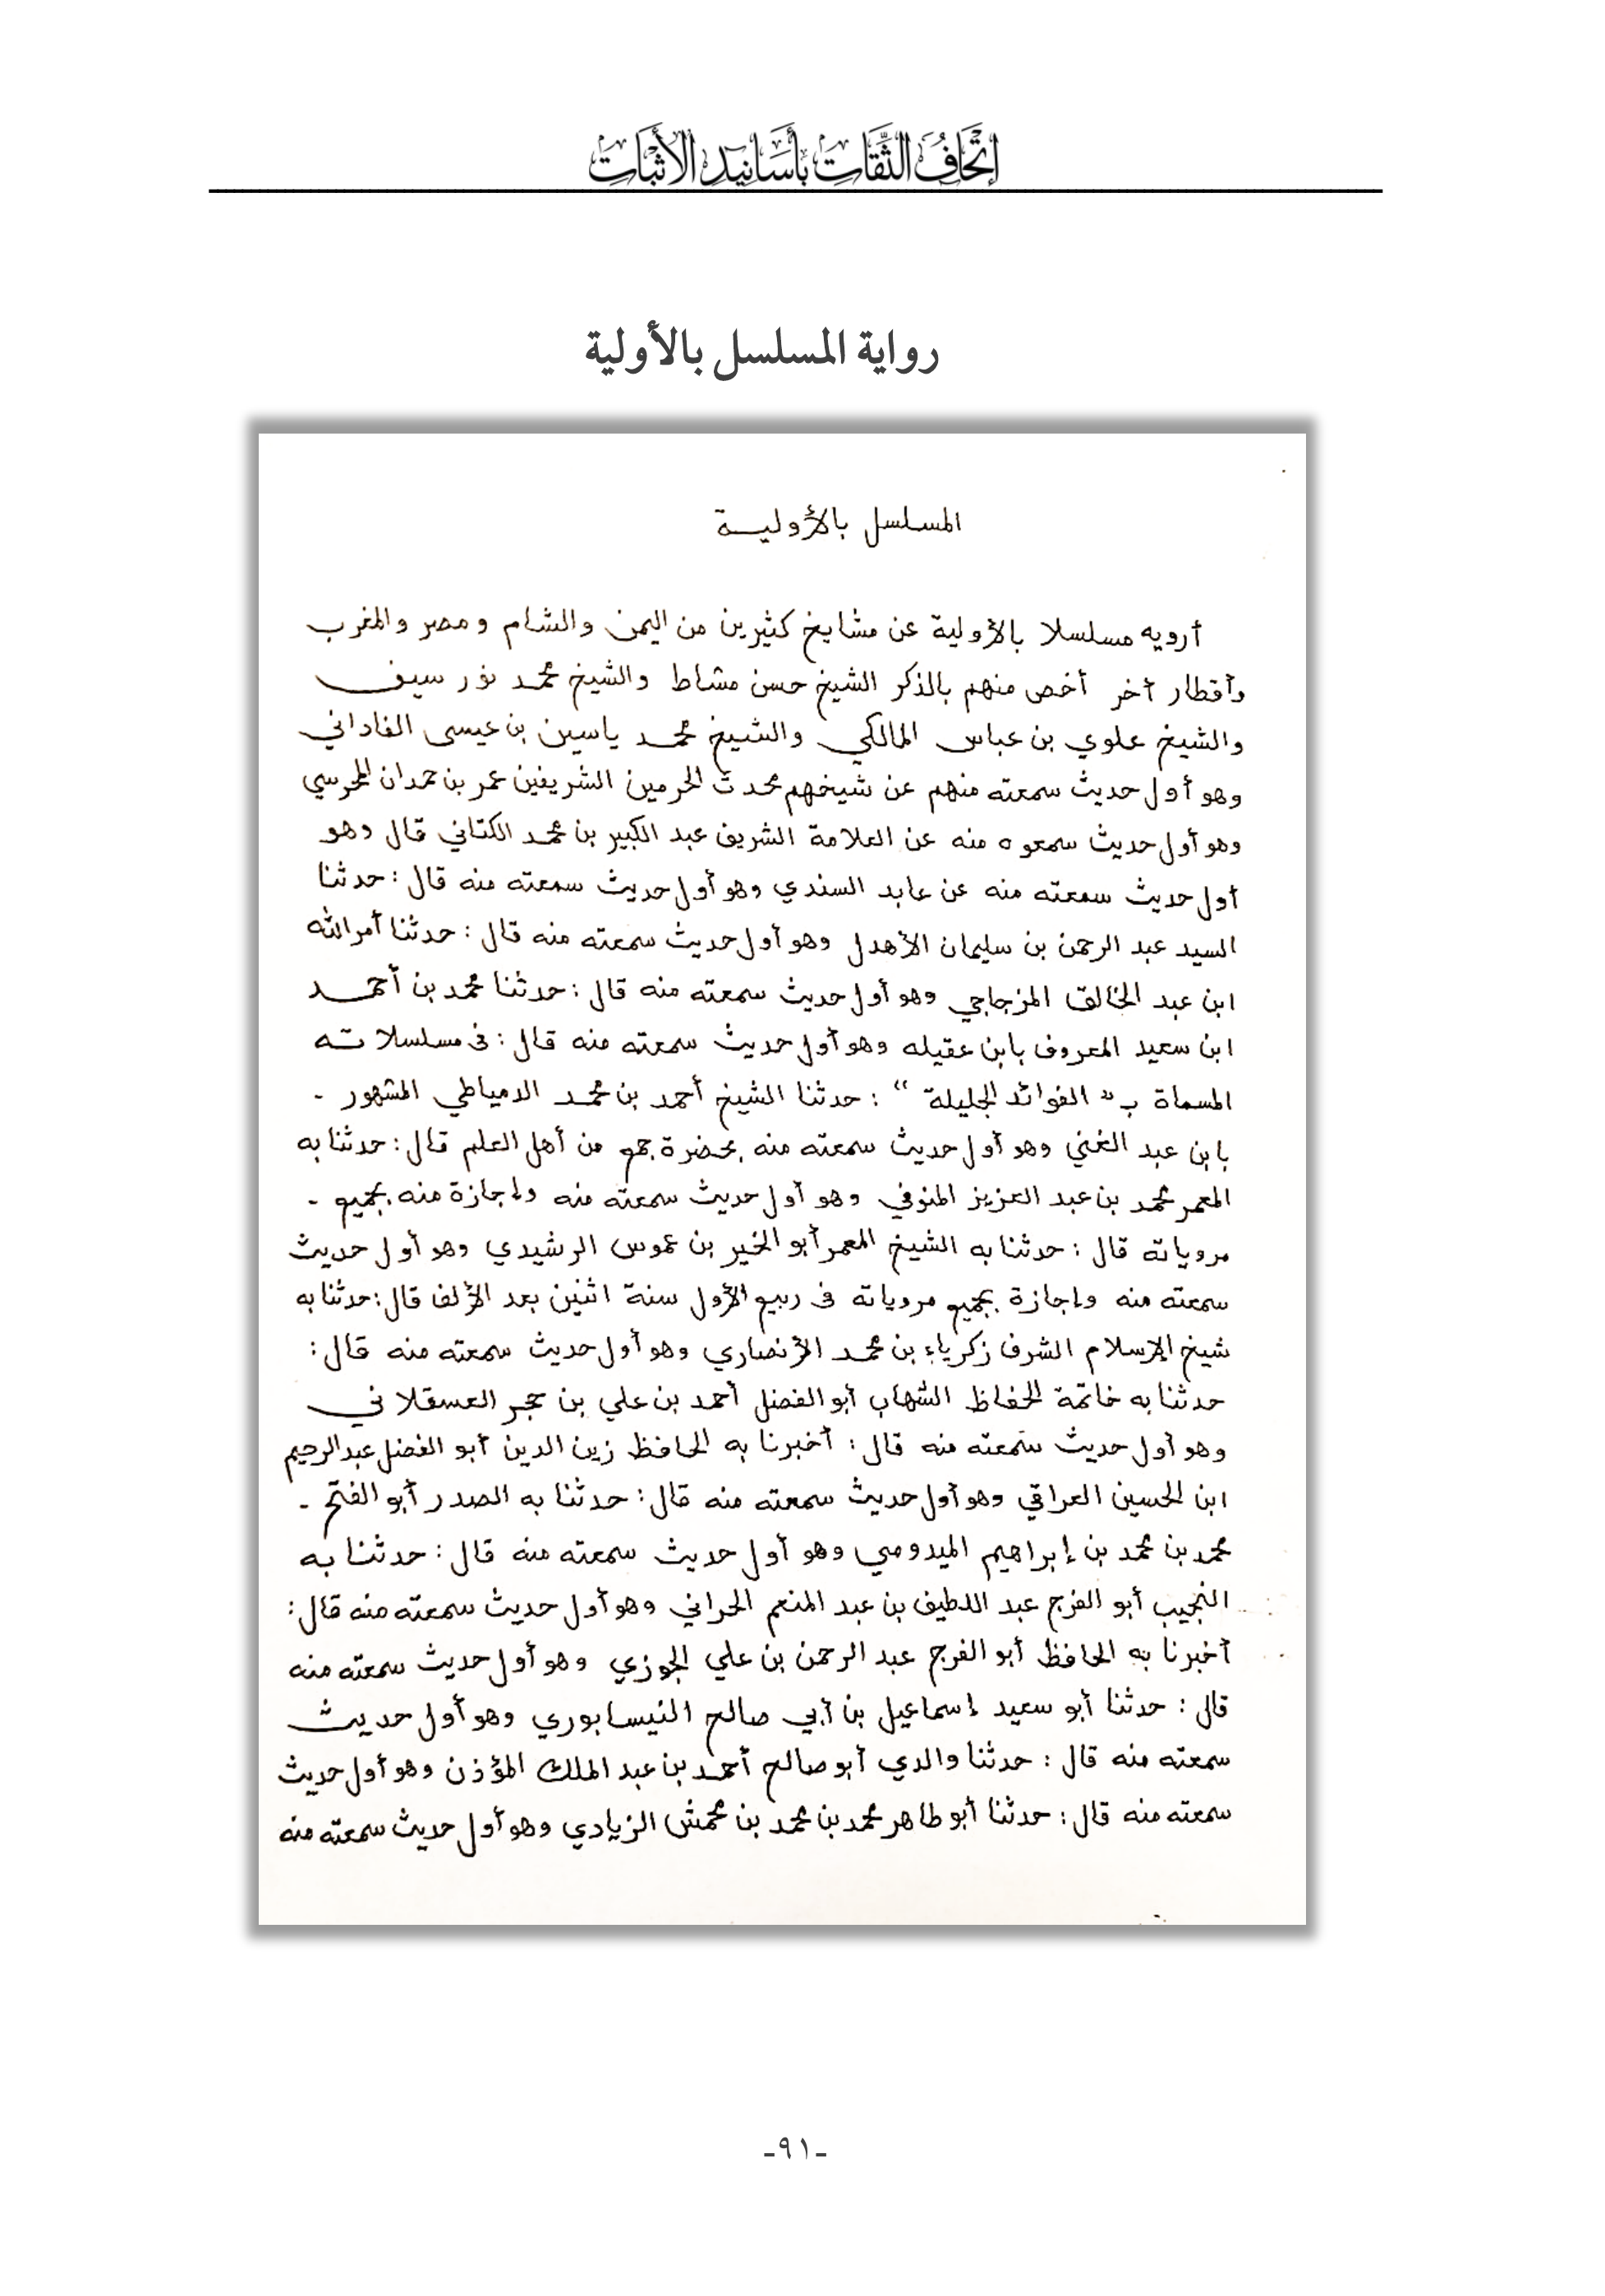 إتحاف الثقات بأسانيد الأثبات
رواية المسلسل بالأولية
المسلسل بالأوليـة
أرويه مسلسلا بالأولية عن مشايخ كثيرين من اليمن والشام ومصر والمغرب
وأقطار أخر أخص منهم بالذكر الشيخ حسن مشاط والشيخ محمد نور سيف
والشيخ علوي بن عباس المالكي والشيخ محمد ياسين بن عيسى الفاداني
وهو أول حديث سمعته منهم عن شيخهم محدث الحرمين الشريفين عمر بن حمدان المحرسي
وهو أول حديث سمعوه منه عن العلامة الشريف عبد الكبير بن محمد الكتاني قال وهو
أول حديث سمعته منه عن عابد السندي وهو أول حديث سمعته منه قال : حدثنا
السيد عبد الرحمن بن سليمان الأهدل وهو أول حديث سمعته منه قال : حدثنا أمر الله
ابن عبد الخالق المزجاجي وهو أول حديث سمعته منه قال : حدثنا محمد بن أحمد
ابن سعيد المعروف بابن عقيله وهو أول حديث سمعته منه قال : فى مسلسلاته
المسماة بـ " الفوائد الجليلة " : حدثنا الشيخ أحمد بن محمد الدمياطي المشهور -
بابن عبد الغني وهو أول حديث سمعته منه بحضرة جمع من أهل العلم قال : حدثنا به
المعمر محمد بن عبد العزيز المنوفي وهو أول حديث سمعته منه وإجازة منه بجميع -
مروياته قال : حدثنا به الشيخ المعمر أبو الخير بن عموس الرشيدي وهو أول حديث
سمعته منه وإجازة بجميع مروياته فى ربيع الأول سنة اثنين بعد الألف قال : حدثنا به
شيخ الإسلام الشرف زكرياء بن محمد الأنصاري وهو أول حديث سمعته منه قال :
حدثنا به خاتمة الحفاظ الشهاب أبو الفضل أحمد بن علي بن حجر العسقلاني
وهو أول حديث سمعته منه قال : أخبرنا به الحافظ زين الدين أبو الفضل عبد الرحيم
ابن الحسين العراقي وهو أول حديث سمعته منه قال : حدثنا به الصدر أبو الفتح -
محمد بن محمد بن إبراهيم الميدومي وهو أول حديث سمعته منه قال : حدثنا به
النجيب أبو الفرج عبد اللطيف بن عبد المنعم الحراني وهو أول حديث سمعته منه قال :
أخبرنا به الحافظ أبو الفرج عبد الرحمن بن علي الجوزي وهو أول حديث سمعته منه
قال : حدثنا أبو سعيد إسماعيل بن أبي صالح النيسابوري وهو أول حديث
سمعته منه قال : حدثنا والدي أبو صالح أحمد بن عبد الملك المؤذن وهو أول حديث
سمعته منه قال : حدثنا أبو طاهر محمد بن محمد بن محمش الزيادي وهو أول حديث سمعته منه
-٩١-